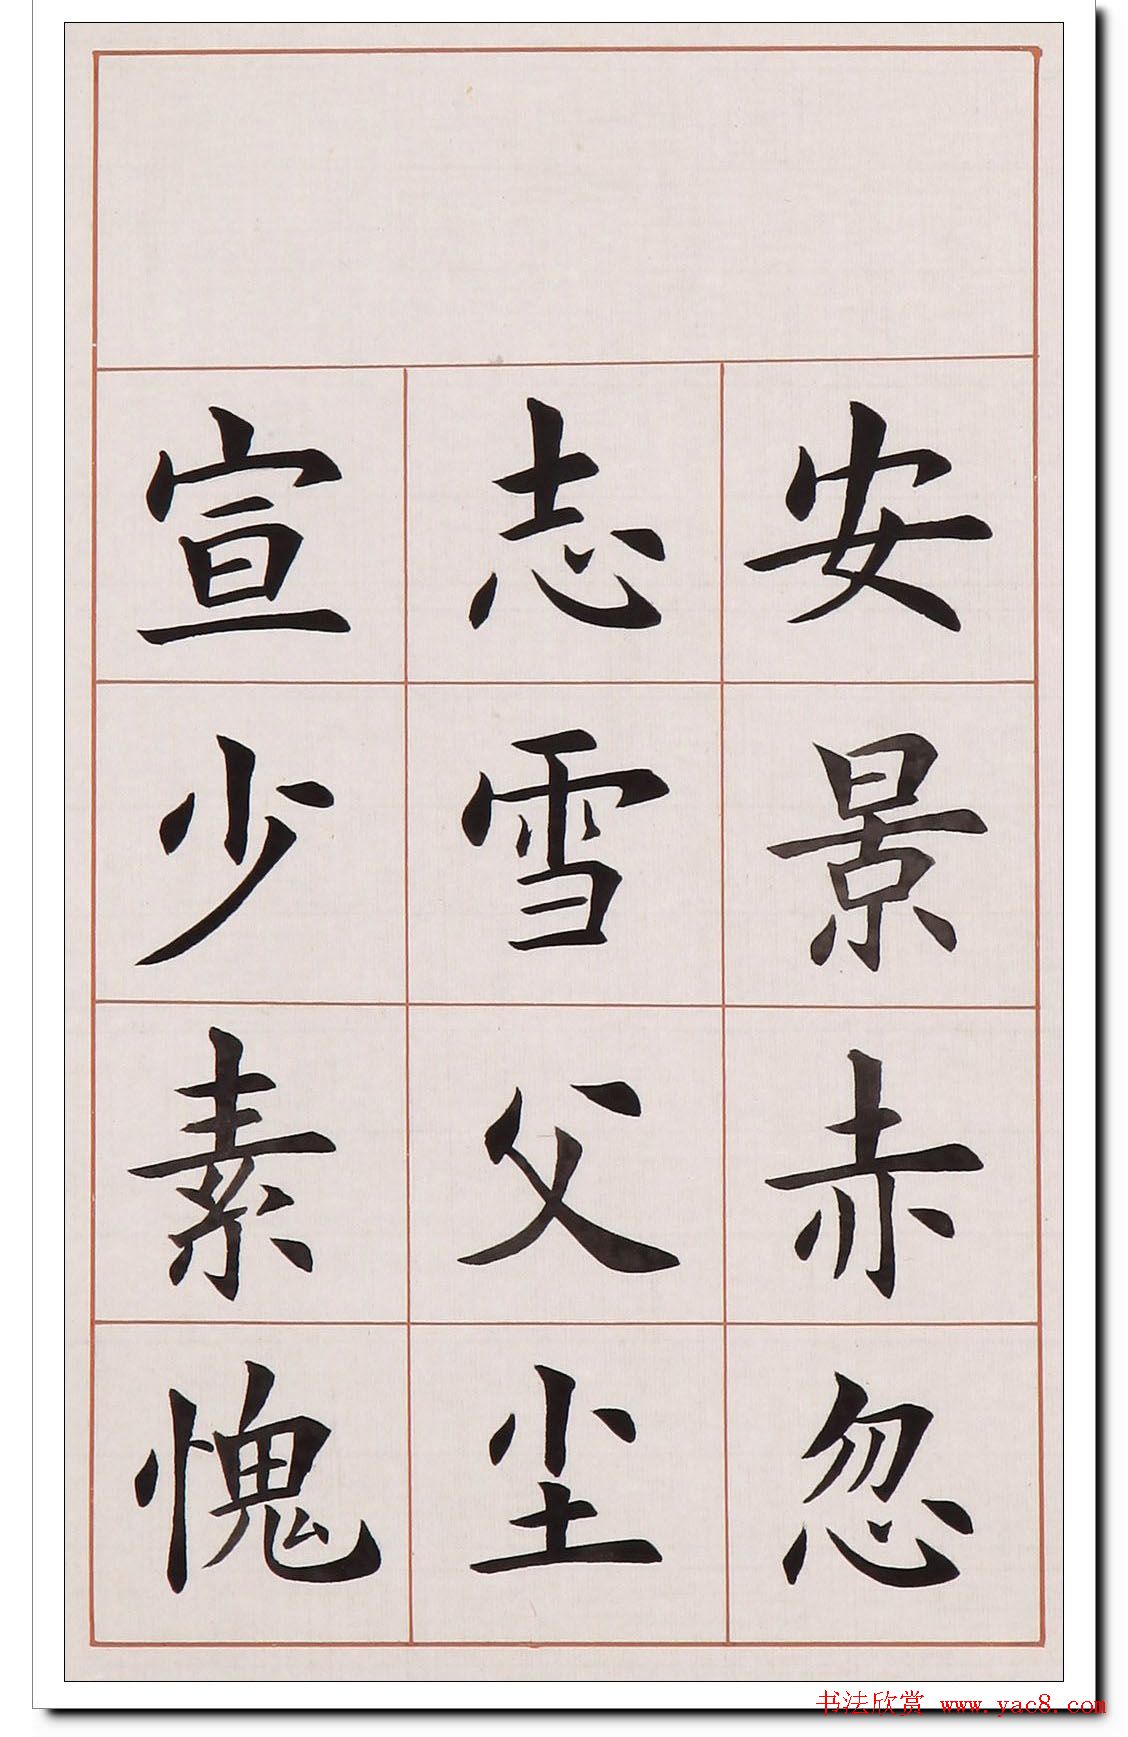 安景赤忽
志雪父尘
宣少素愧
书法欣赏 www.yac8.com